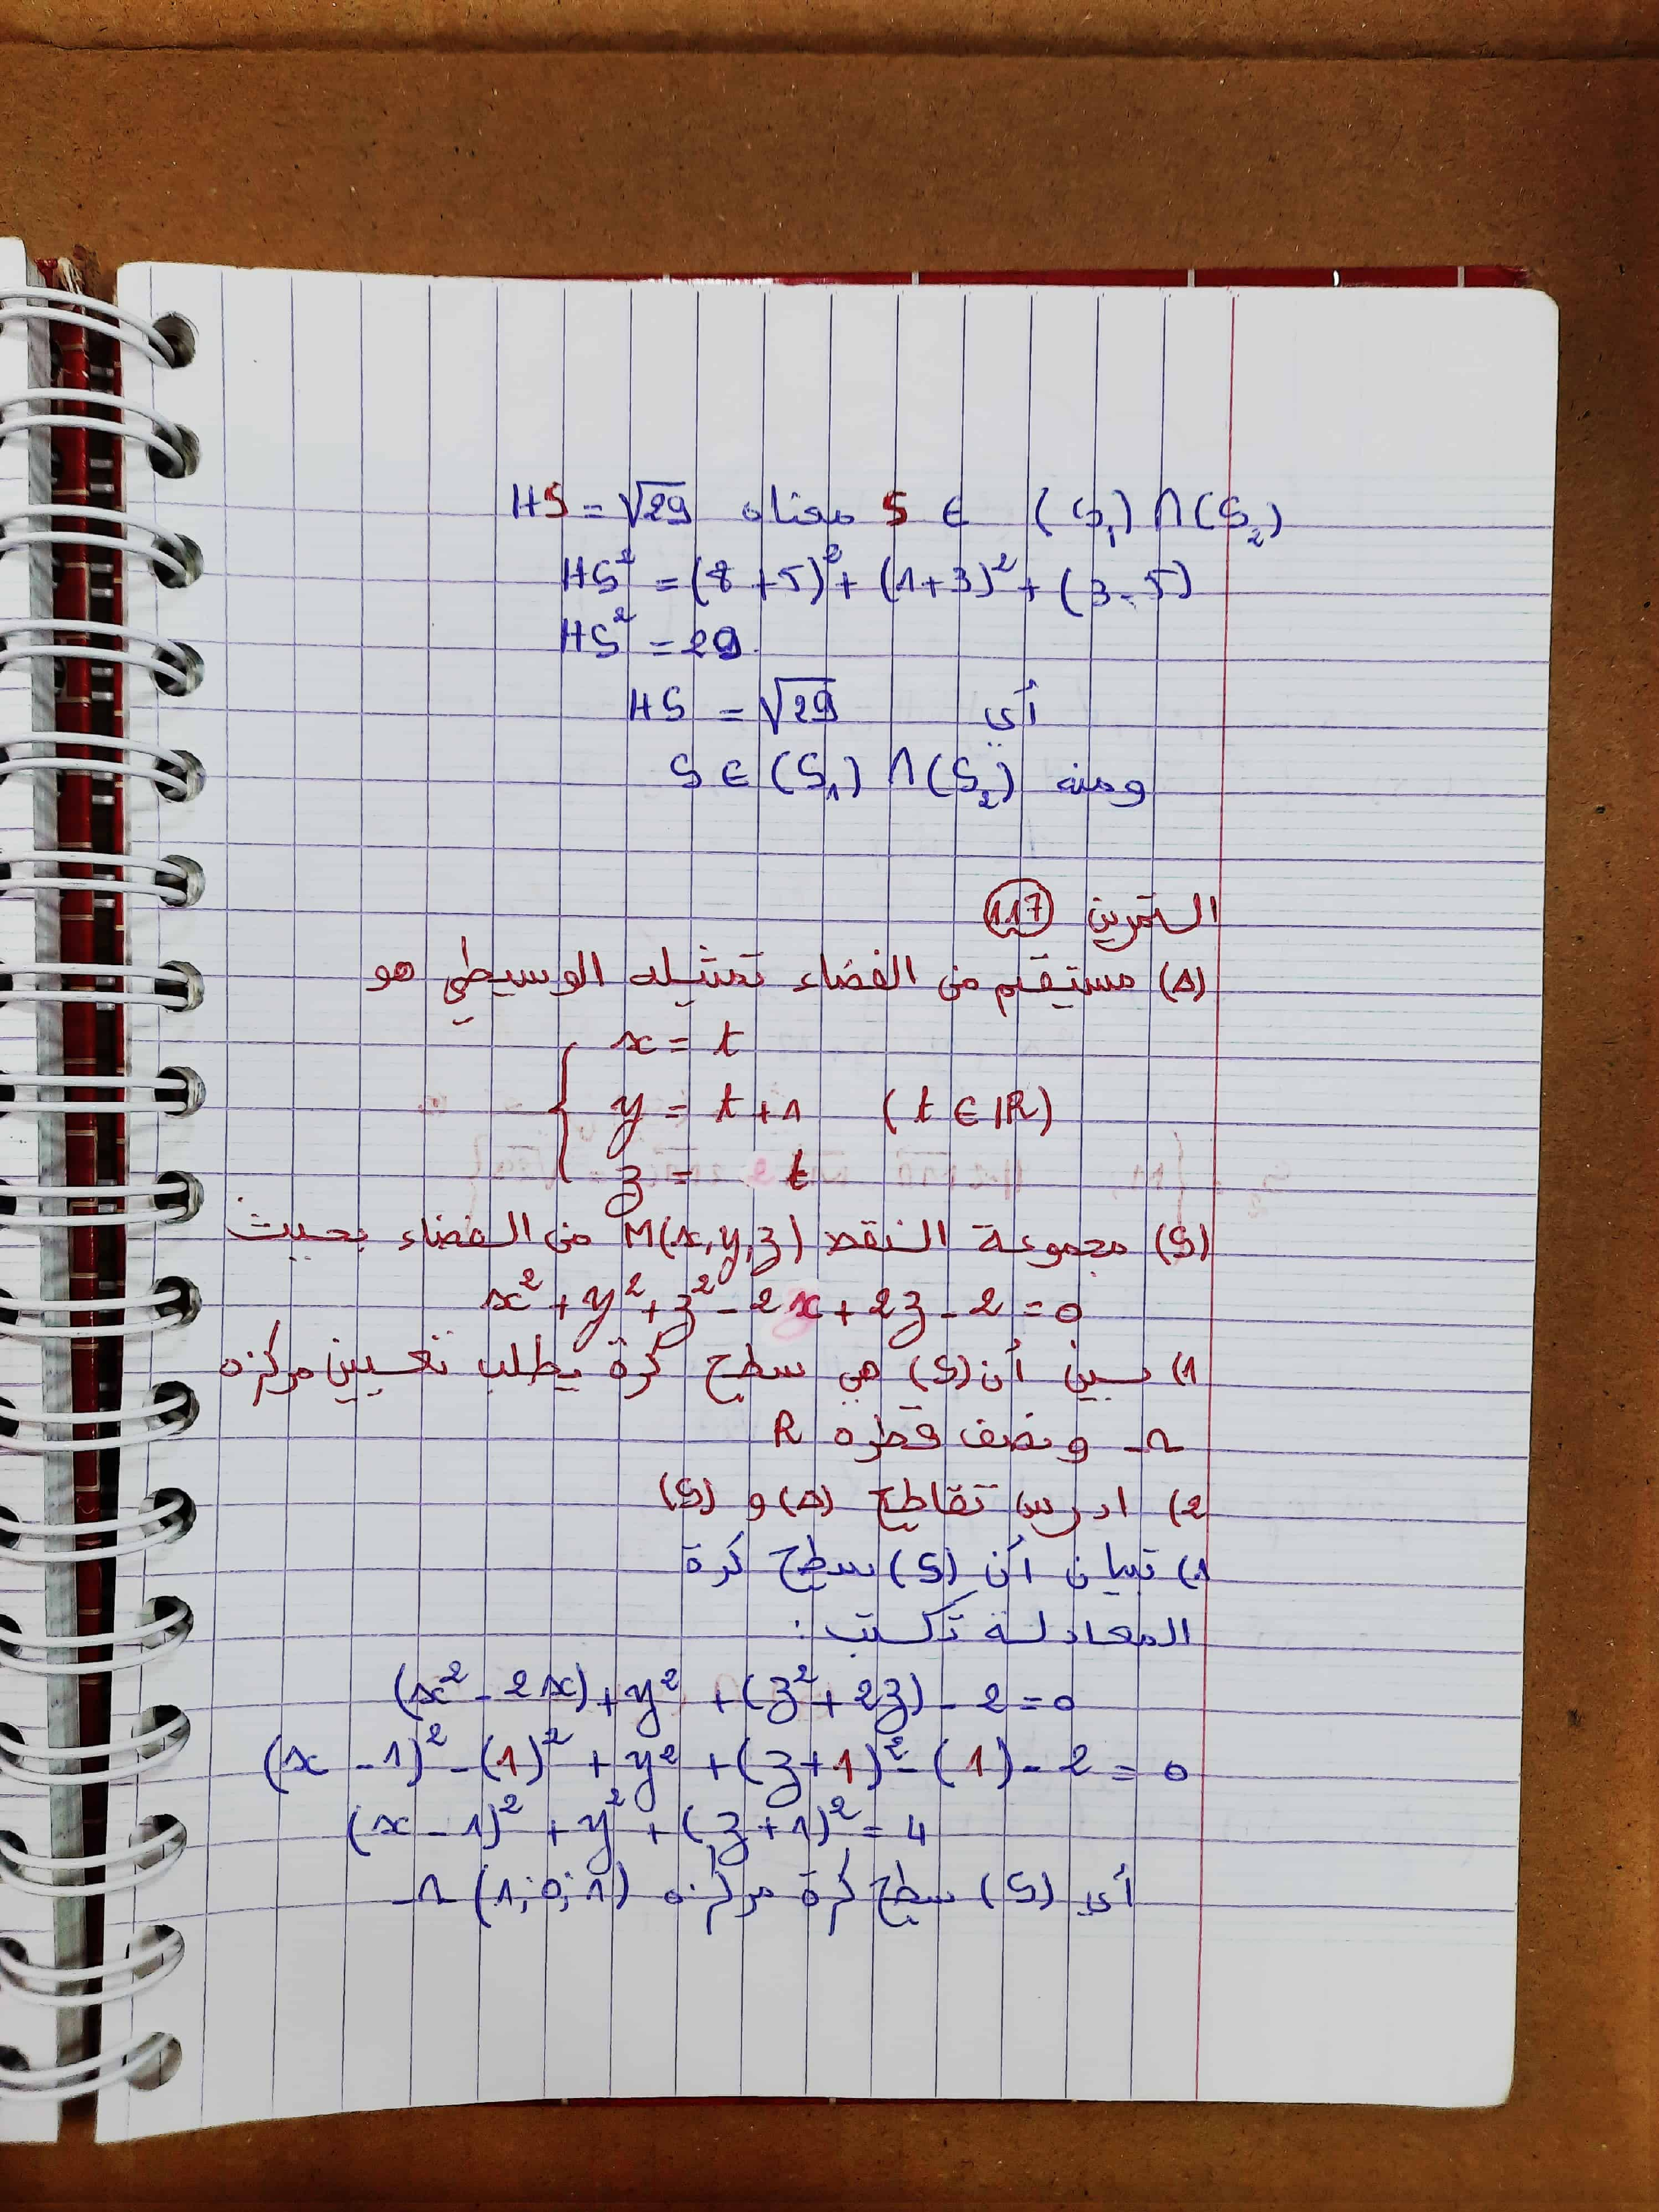 HS = √29 معناه S ∈ (S₁) ∩ (S₂)
HS² = (8+5)² + (1+3)² + (3-5)
HS² = 29
أي HS = √29
ومنه S ∈ (S₁) ∩ (S₂)
التمرين 117
(Δ) مستقيم من الفضاء تمثيله الوسيطي هو
x = t
y = t+1 (t ∈ ℝ)
z = t
(S) مجموعة النقط M(x,y,z) من الفضاء بحيث
x² + y² + z² - 2x + 2z - 2 = 0
1) بين أن (S) هي سطح كرة يطلب تعيين مركزه
Ω ونصف قطره R
2) ادرس تقاطع (Δ) و (S)
1) تبيان أن (S) سطح كرة
المعادلة تكتب :
(x² - 2x) + y² + (z² + 2z) - 2 = 0
(x - 1)² - (1)² + y² + (z+1)² - (1) - 2 = 0
(x - 1)² + y² + (z+1)² = 4
أي (S) سطح كرة مركزه Ω(1;0;1)